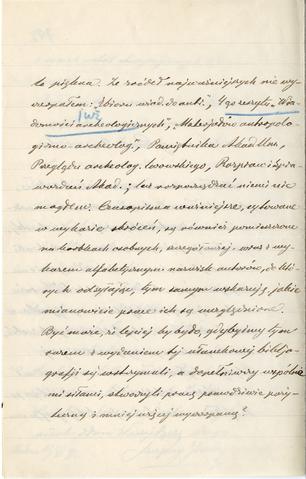 to piękna. Ze źródeł najważniejszych nie wy-
czerpałem: "Zbioru wiad. do antr.", 4go zeszytu "Wia-
domości archeologicznych", "Materyałów antropolo-
giczno-archeolog.", Pamiętnika Akad. Um.,
Przeglądu archeolog. lwowskiego, Rozpraw i Spra-
wozdań Akad.; bo rozporządzać niemi nie
mogłem. Czasopisma ważniejsze, cytowane
w wykazie skróceń, są również pomieszczone
na kartkach osobnych, szczegółowiej, wraz z wy-
kazem alfabetycznym nazwisk autorów, do któ-
rych odsyłając, tym samym wskazują, jakie
mianowicie prace ich są uwzględnione.
Być może, iż lepiej by było, gdybyśmy tym-
czasem z wydaniem tej ułamkowej bibljo-
grafji się wstrzymali, a dopełniwszy wspólne-
mi siłami, stworzyli pracę prawdziwie poży-
teczną i mniej więcej wyczerpaną?